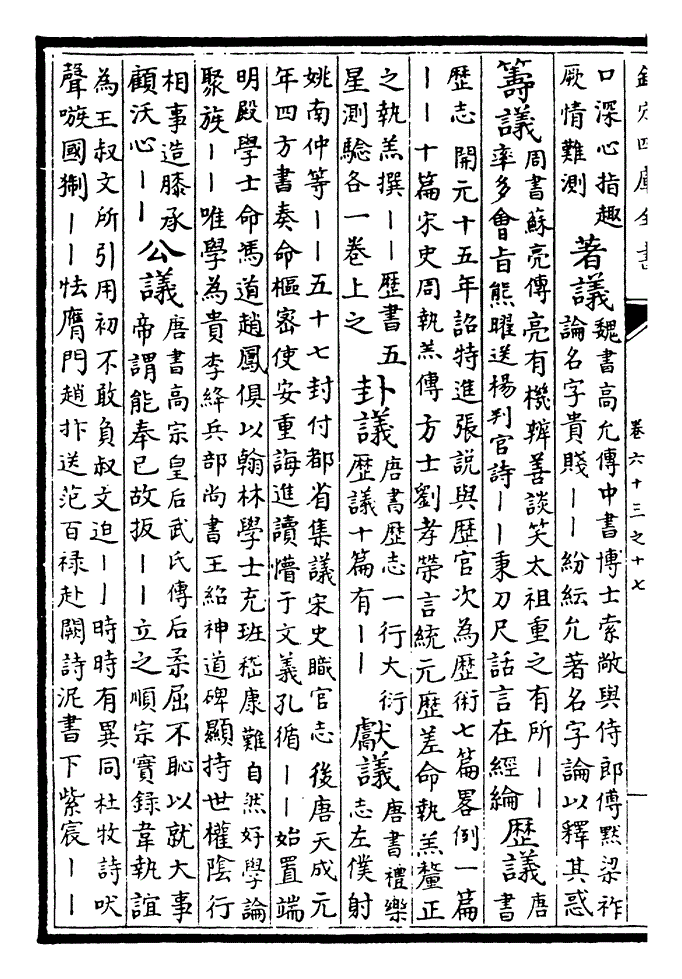 欽定四庫全書
卷六十三之十七
口深心指趣
厥情難測
著議
魏書高允傳中書博士索敞與侍郎傅黙梁祚
論名字貴賤――紛紜允著名字論以釋其惑
籌議
周書蘇亮傳亮有機辨善談笑太祖重之有所――
率多會旨熊曜送楊判官詩――秉刀尺話言在經綸
歴議
唐
書
歴志開元十五年詔特進張說與歴官次為歴術七篇畧倒一篇
――十篇宋史周執羔傳方士劉孝榮言統元歴差命執羔釐正
之執羔撰――歴書五
星測驗各一卷上之
卦議
唐書歴志一行大衍
歴議十篇有――
獻議
唐書禮樂
志左僕射
姚南仲等――五十七封付都省集議宋史職官志後唐天成元
年四方書奏命樞密使安重誨進讀懵于文義孔循――始置端
明殿學士命馮道趙鳳俱以翰林學士充班嵇康難自然好學論
聚族――唯學為貴李絳兵部尚書王紹神道碑顯持世權陰行
相事造膝承
顧沃心――
公議
唐書高宗皇后武氏傳后柔屈不恥以就大事
帝謂能奉已故扳――立之順宗實録韋執誼
為王叔文所引用初不敢負叔文迫――時時有異同杜牧詩吠
聲嗾國猘――怯膺門趙抃送范百禄赴闕詩泥書下紫宸――